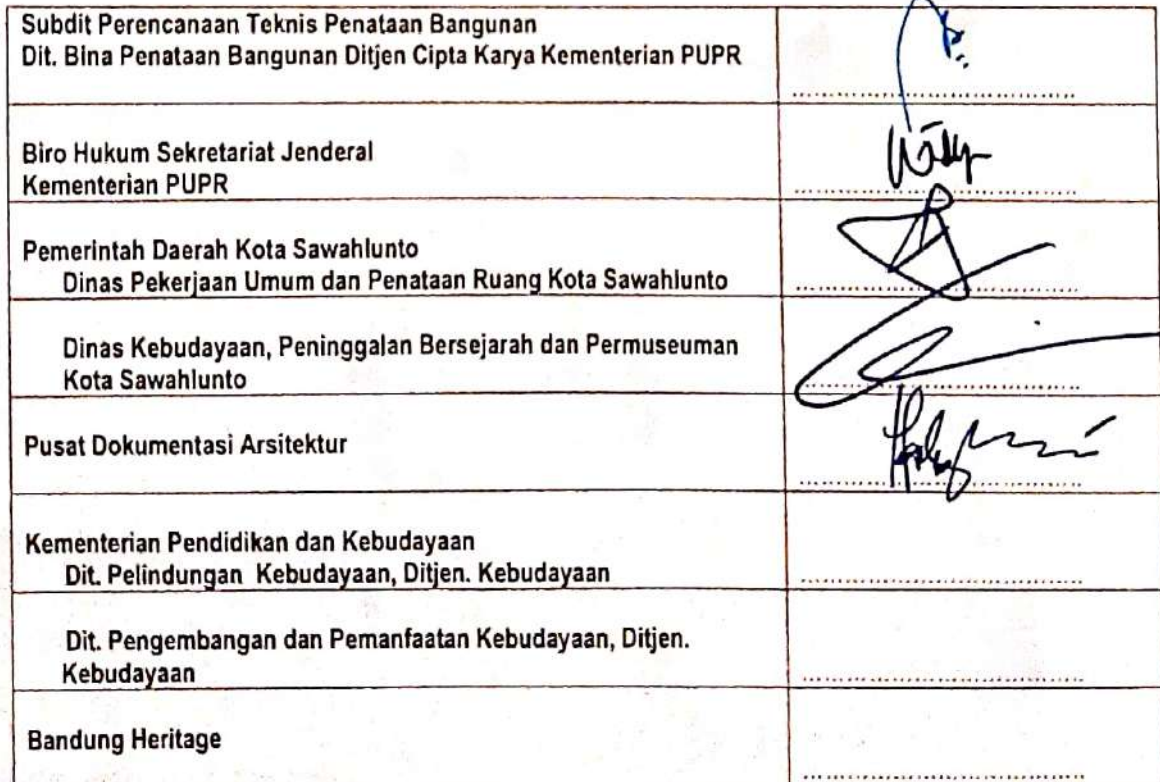 Subdit Perencanaan Teknis Penataan Bangunan
Dit. Bina Penataan Bangunan Ditjen Cipta Karya Kementerian PUPR
Biro Hukum Sekretariat Jenderal
Kementerian PUPR
Pemerintah Daerah Kota Sawahlunto
Dinas Pekerjaan Umum dan Penataan Ruang Kota Sawahlunto
Dinas Kebudayaan, Peninggalan Bersejarah dan Permuseuman
Kota Sawahlunto
Pusat Dokumentasi Arsitektur
Kementerian Pendidikan dan Kebudayaan
Dit. Pelindungan Kebudayaan, Ditjen. Kebudayaan
Dit. Pengembangan dan Pemanfaatan Kebudayaan, Ditjen.
Kebudayaan
Bandung Heritage